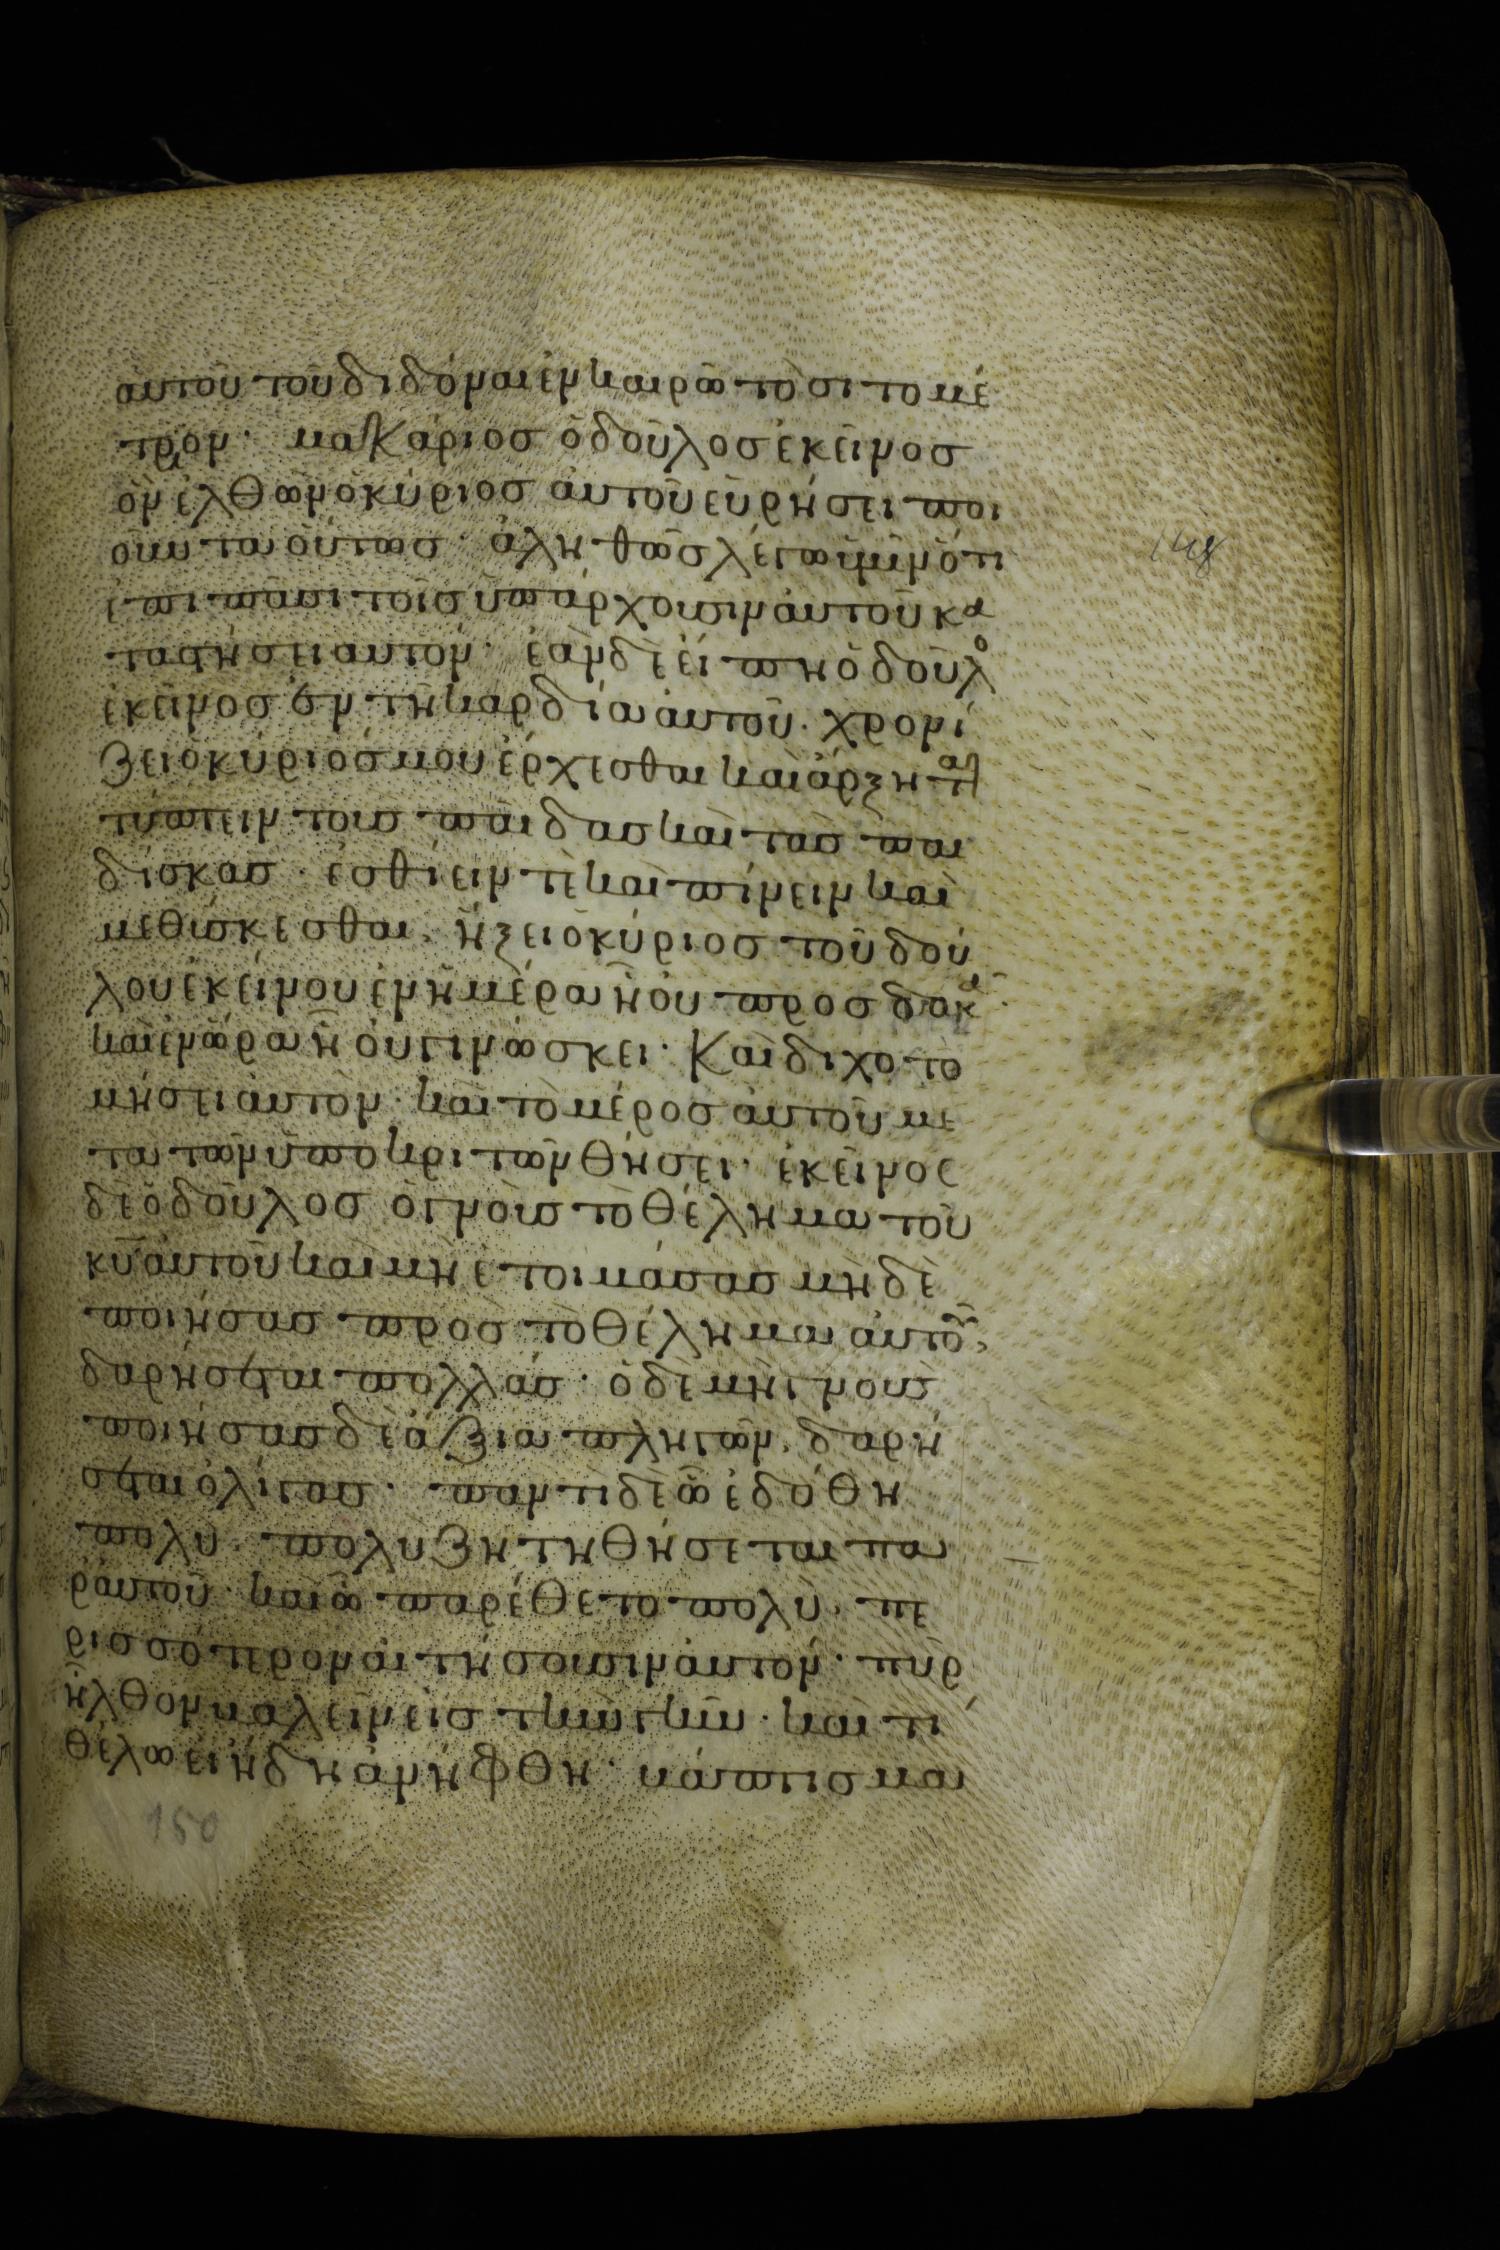 αυτοῦ τοῦ διδόναι ἐν καιρῶ τὸ σιτομέ
τριον· μακάριος ὁ δοῦλος ἐκεῖνος
ὃν ἐλθὼν ὁ κύριος αὐτοῦ εὑρήσει ποι
οῦντα οὕτως· ἀληθῶς λέγω ὑμῖν ὅτι
ἐπὶ πᾶσι τοῖς ὑπάρχουσιν αὐτοῦ κα
ταστήσει αυτόν· ἐὰν δὲ εἴπη ὁ δοῦλο
ἐκεῖνος ἐν τῆ καρδία αὐτοῦ· χρονί
ζει ὁ κύριός μου ἔρχεσθαι καὶ ἄρξηται
τύπτειν τοὺς παῖδας καὶ τὰς παι
δίσκας· ἐσθίειν τὲ καὶ πίνειν καὶ
μεθύσκεσθαι· ἥξει ὁ κύριος τοῦ δού
λου ἐκείνου ἐν ἡμέρα ἧ οὐ προσδοκᾶ·
καὶ ἐν ὥρα ἧ οὐ γινώσκει· Καὶ διχοτο
μήσει αὐτὸν· καὶ τὸ μέρος αὐτοῦ με
τὰ τῶν ὑποκριτῶν θήσει· ἐκεῖνος
δὲ ὁ δοῦλος ὁ γνοὺς τὸ θέλημα τοῦ
κυ αὐτοῦ καὶ μὴ ἑτοιμάσας μηδὲ
ποιήσας πρὸς τὸ θέλημα αὐτοῦ,
δαρήσεται πολλάς· ὁ δὲ μὴ γνοὺς
ποιήσας δὲ ἄξια πληγῶν· δαρή
σεται ὀλίγας· παντὶ δὲ ὧ ἐδόθη
πολὺ· πολὺ ζητηθήσεται πα
ρ αὐτοῦ· καὶ ὧ παρέθετο πολὺ· πε
ρισσότερον αἰτήσουσιν αὐτόν· πῦρ
ἦλθον βαλεῖν εἰς τὴν γῆν· καὶ τί
θέλω εἰ ἤδη ἀνήφθη· βάπτισμα
148
150